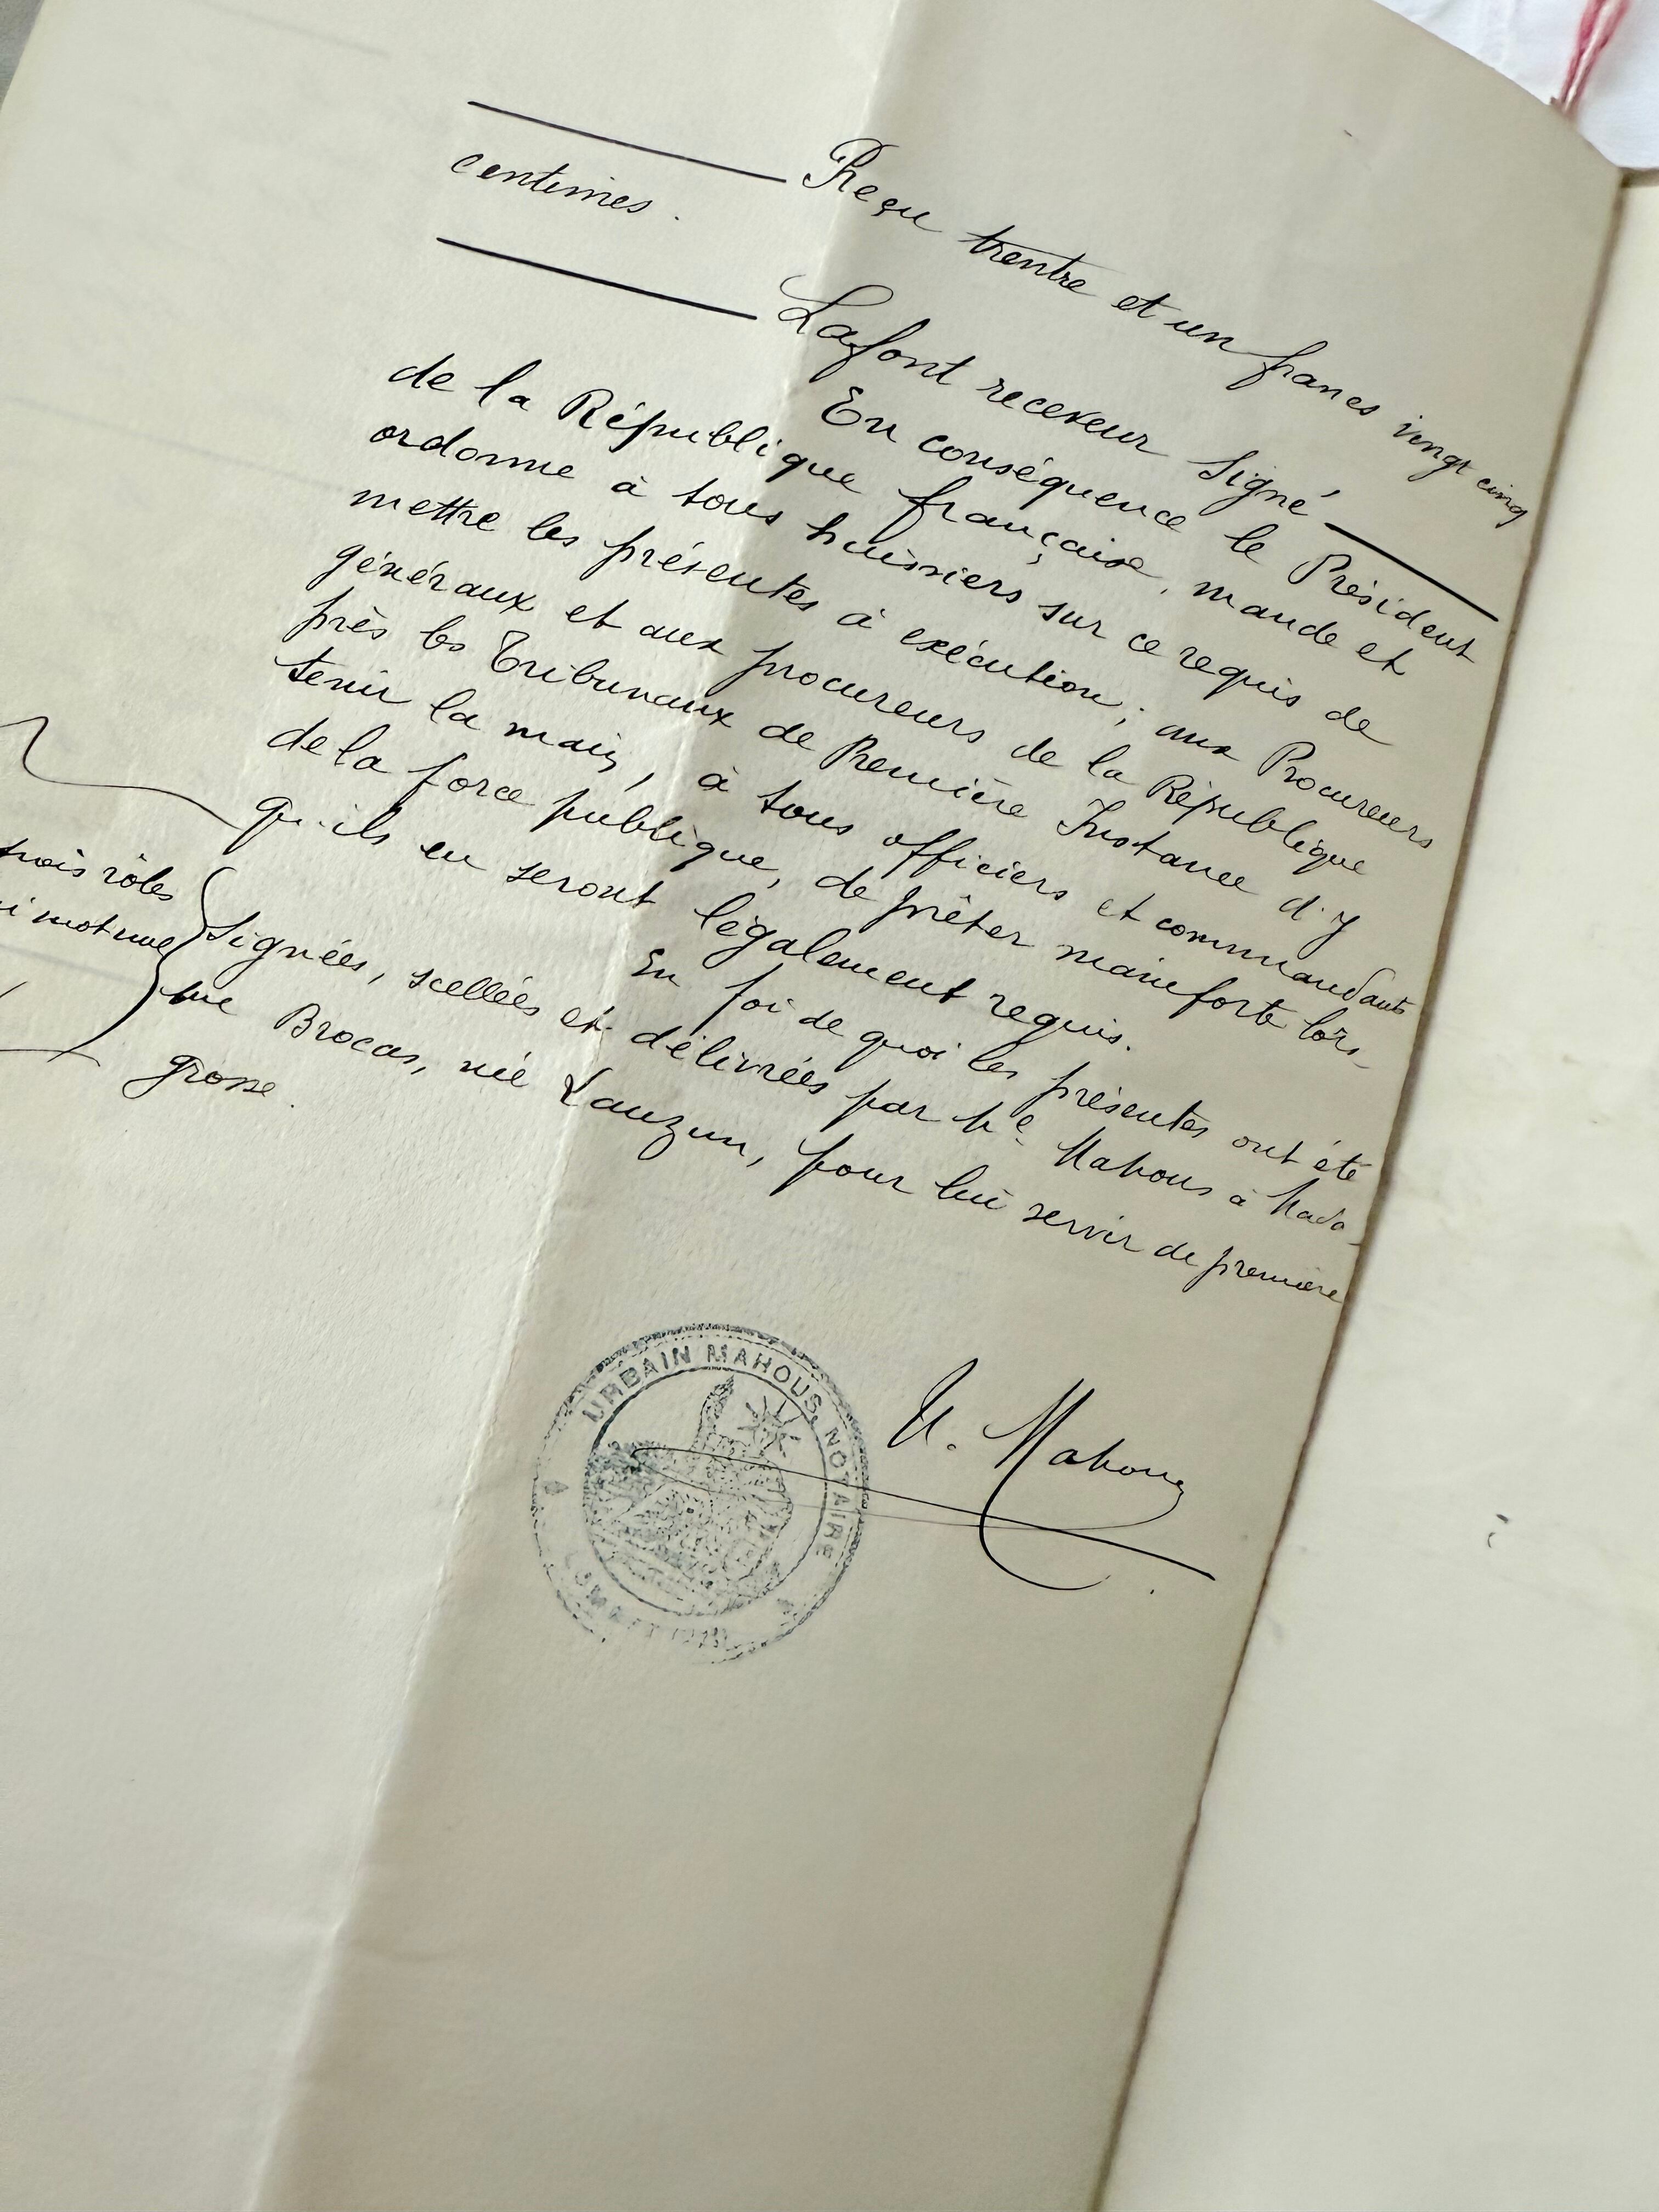 Reçu trentre et un francs vingt cinq
centimes.
Lafont receveur signé
En conséquence le Président
de la République française, mande et
ordonne à tous huissiers sur ce requis de
mettre les présentes à exécution ; aux Procureurs
généraux et aux procureurs de la République
près les Tribunaux de Première Instance d'y
tenir la main, à tous officiers et commandants
de la force publique, de prêter mainforte lors-
qu'ils en seront légalement requis.
En foi de quoi les présentes ont été
signées, scellées et délivrées par Me Mahous à Mada-
me Brocas, née Lauzun, pour lui servir de première
grosse.
rois rôles
mot nul
URBAIN MAHOUS, NOTAIRE
U. Mahous